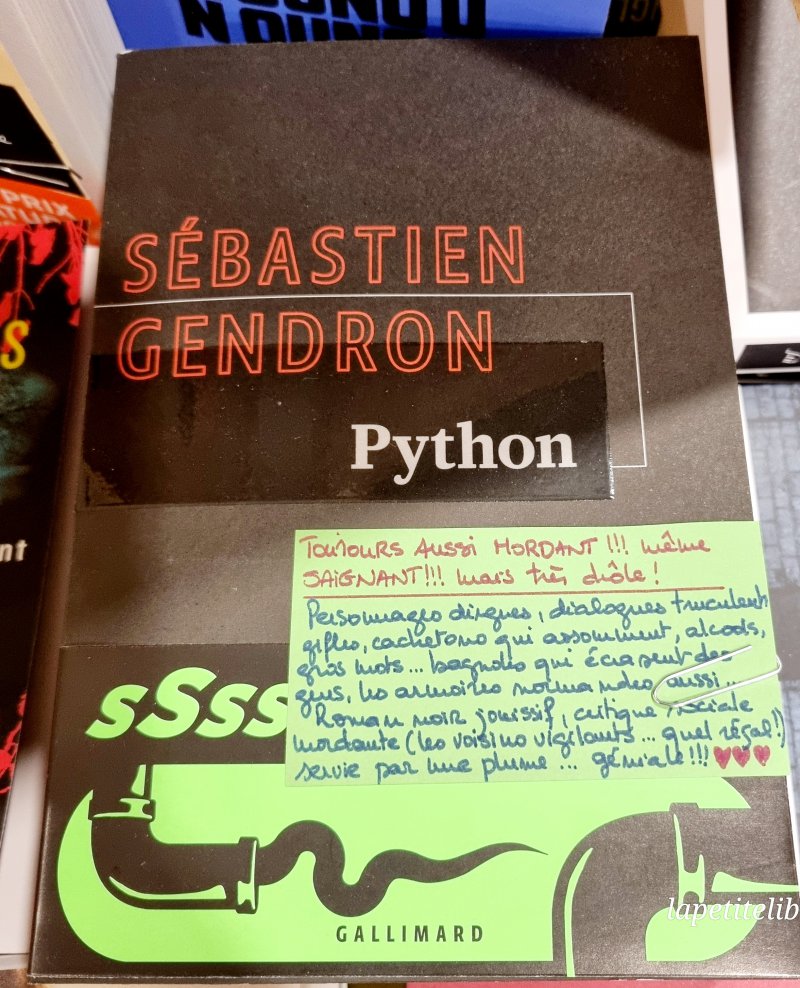 PRIX
S
nt
SÉBASTIEN
GENDRON
Python
TOUJOURS AUSSI MORDANT !!! même
SAIGNANT!!! mais très drôle !
Personnages dingues, dialogues truculents
gifles, cachetons qui assomment, alcools,
gros mots... bagnoles qui écrasent des
gens, les armoires normandes aussi...
Roman noir jouissif, critique sociale
mordante (les voisins vigilants... quel régal!)
servie par une plume ... géniale!!!
sSss
GALLIMARD
lapetitelib